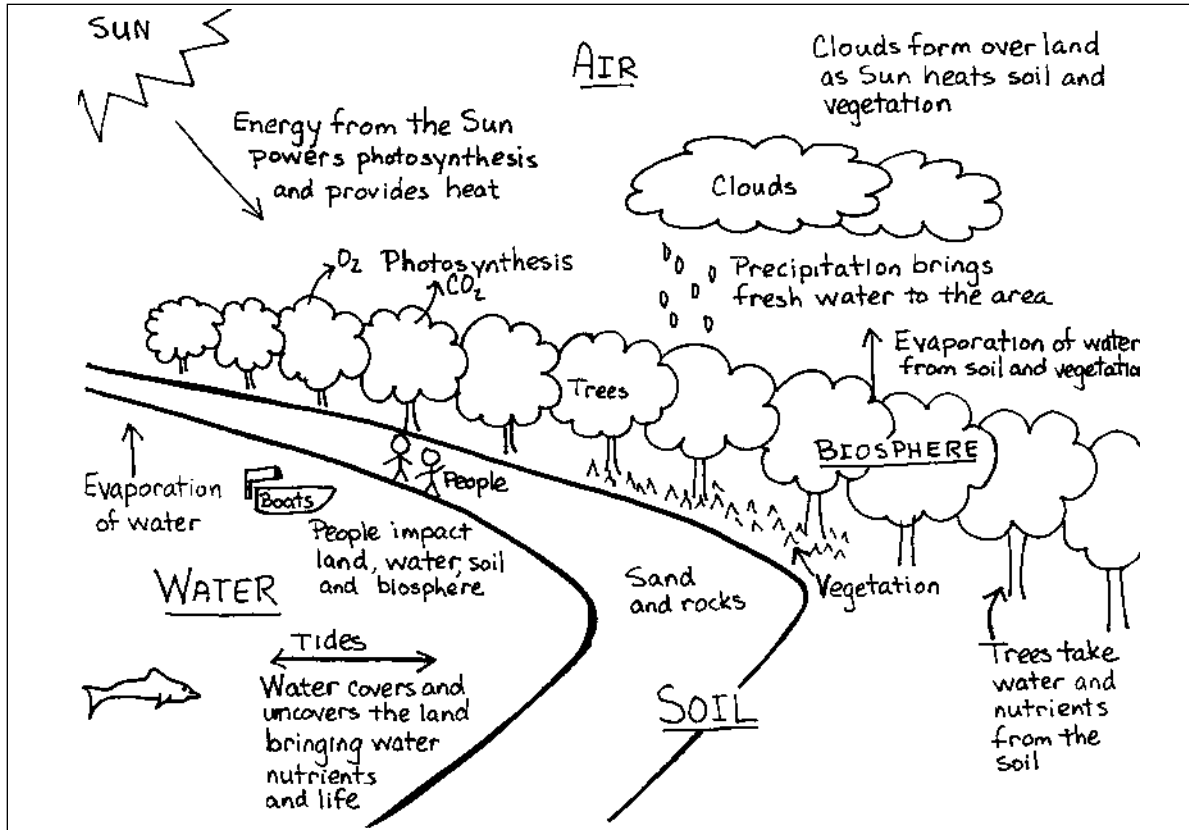 SUN
AIR
Clouds form over land
as Sun heats soil and
vegetation
Energy from the Sun
powers photosynthesis
and provides heat
Clouds
O₂ Photosynthesis
CO₂
Precipitation brings
fresh water to the area
Evaporation of water
from soil and vegetatio
Trees
BIOSPHERE
Evaporation
of water
Boats
People
People impact
land, water, soil
and biosphere
WATER
Sand
and rocks
Vegetation
Tides
Water covers and
uncovers the land
bringing water
nutrients
and life
SOIL
Trees take
water and
nutrients
from the
soil